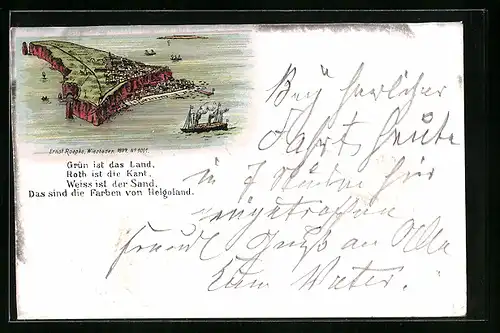 Ernst Roepke, Wiesbaden. 1897. Nº 9001.
Grün ist das Land,
Roth ist die Kant,
Weiss ist der Sand,
Das sind die Farben von Helgoland.
Bey herrlicher
Fahrt heute
in 7 Stunden hier
eingetroffen
freundl Gruß an Alle
Euer Vater.